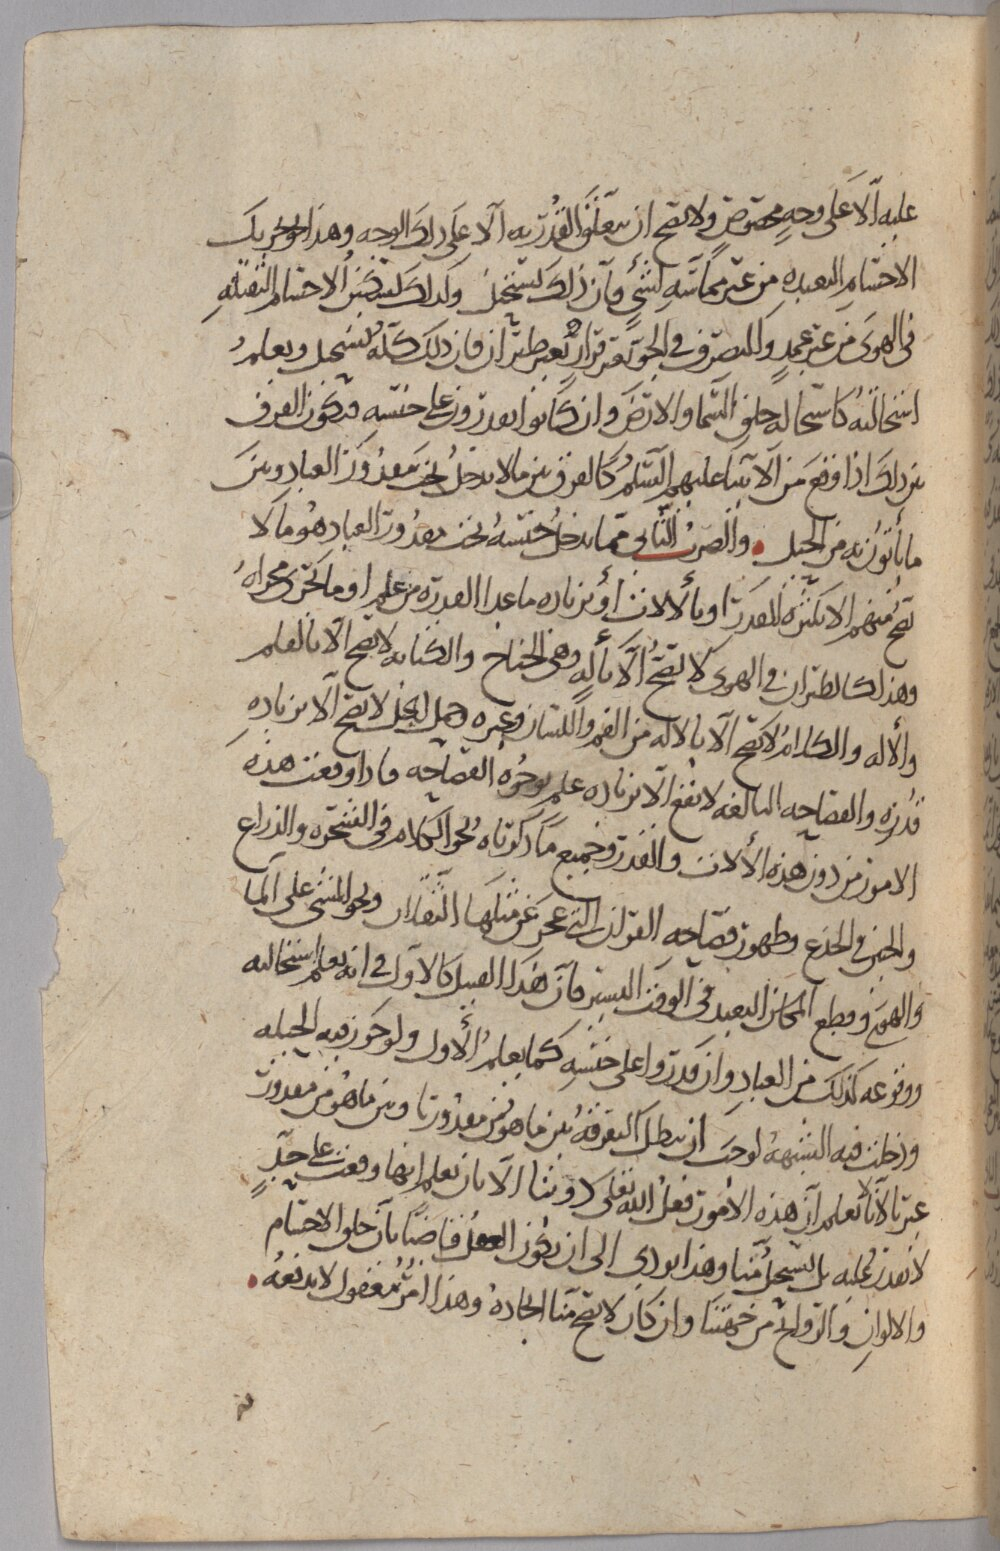 عليه الّا على وجهٍ مخصوصٍ ولا يصح ان يتعلّق القُدرة به الّا على ذلك الوجه وهذا نحو تحريك
الاجسام البعيدة من غير مماسّةِ لشيءٍ فان ذلك يستحيل وكذلك تسكين الاجسام الثقيلةِ
في الهوى من غير عمدٍ والتصرّف في الجو بغير قرارٍ بغير طيران فان ذلك كلّه يستحيل ويعلمُ
استحالتهُ كاستحالة خلق السّما والارض وان كانوا يقدرون على جنسه فيكون الفرق
بين ذلك اذا وقع من الانبيا عليهم السّلمُ كالفرق بين ما لا يدخل تحت مقدور العباد وبين
ما يأتون به من الحيل • والضربُ الثاني ممّا يدخل جنسهُ تحت مقدور العباد هو ما لا
يصحّ منهم الا بكثرة القدر او بالالات او بزيادة ما عدا القدرة من علم او ما يجري مجراهُ
وهذا كالطيران في الهوى لا يصحّ الّا بألهٍ وهي الجناح والكتابه لا يصح الّا بالعلم
والأله والكلامُ لا يصح الّا بالاله من الفم واللّسان وغيره وحمل الجبل لا يصح الّا بزيادةِ
قُدره والفصاحه البالغه لا يقع الّا بزياده علمٍ بوجوه الفصاحه فاذا وقعت هذه
الامور من دون هذه الألات والقدر وجميع ما ذكرناه نحو الكلام في الشّجره والذراع
والحنين في الجذع وظهور فصاحه القرآن التي عجز عن مثلها الثقلان ونحو المشي على الما
والهوى وقطع المكان البعيد في الوقت اليسير فان هذا القبيل كالاول في انه يعلم استحاله
وقوعه كذلك من العباد وان قدروا على جنسهِ كما يعلمُ الأول ولو جُوّز فيه الحيله
ودخلت فيه الشبههُ لوجب ان يبطل التفرقةُ بين ما هو من مقدورنا وبين ما هو من مقدور
غيرنا لأنّا لا نعلم أن هذه الأمور فعل الله تعالى دوننا الّا بان نعلم انها وقعت على حدٍّ
لا نقدر عليه بل يستحيلُ منّا وهذا يودي الى ان يكون العقل قاضياً بأن خلق الاجسام
والالوان والروايح من جهتنا وان كان لا يصح منّا ايجادهُ وهذا امرٌ معقول لا يدفعهُ •